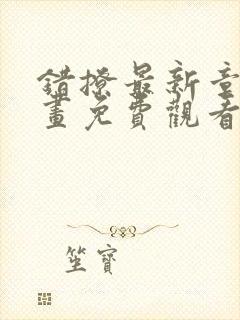 錯撩最新章
畫免費觀看
坐寶